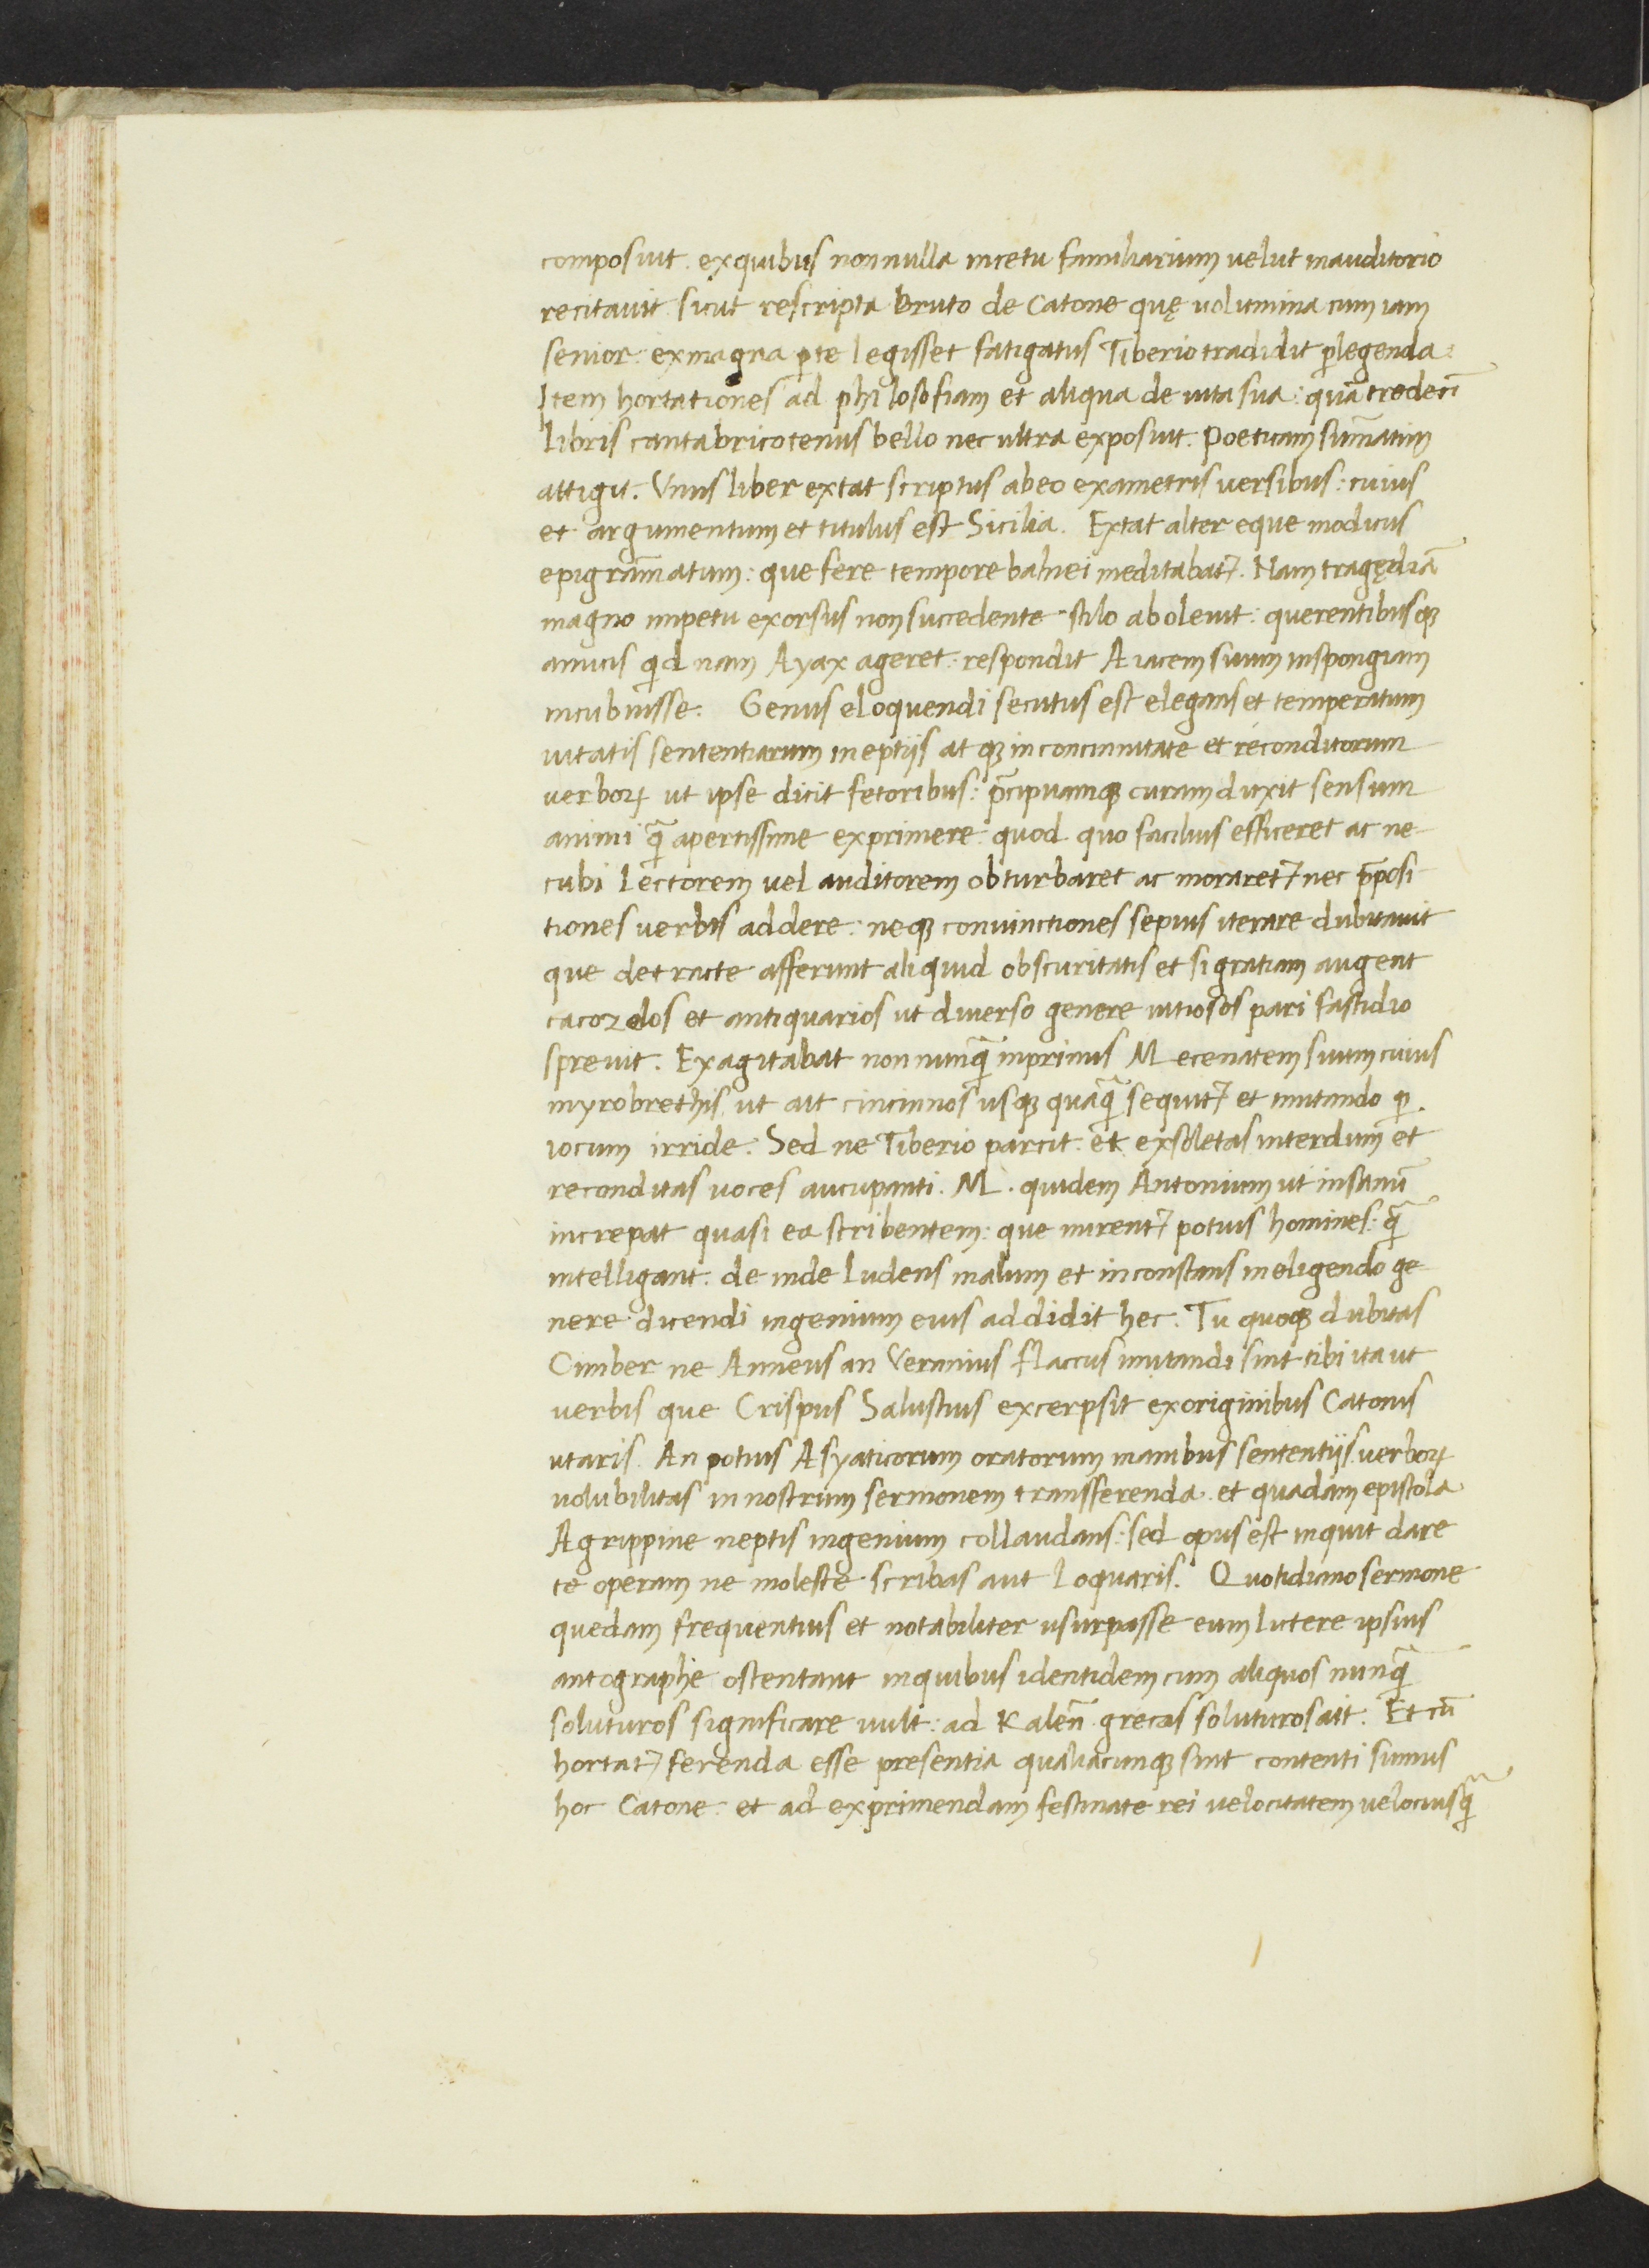 composuit. exquibus nonnulla incetu familiarium uelut inauditorio
recitauit sicut rescripta Bruto de Catone quę uolumina cum iam
senior: exmagna ꝑte legisset fatigatus Tiberio tradidit ꝑlegenda:
Item hortationes ad philosofiam et aliqua de uita sua: quā tredecī
libris cantabricotenus bello nec ultra exposuit. Poeticam sum̄atim
attigit. Vnus liber extat scriptus abeo exametris uersibus: cuius
et argumentum et titulus est Sicilia. Extat alter eque modicus
epigram̄atum: que fere tempore balnei meditabat᷑. Nam tragędiā
magno impetu exorsus non succedente stilo aboleuit: querentibusqꝫ
amicis qͥd nam Ayax ageret: respondit Aiacem suum inspongiam
incubuisse: Genus eloquendi secutus est elegans et temperatum
uitatis sententiarum ineptijs atqꝫ inconcinnitate et reconditorum
uerboꝝ ut ipse dicit fetoribus: p̄cipuamqꝫ curam duxit sensum
animi qͣ̄ apertissime exprimere: quod quo facilius efficeret ac ne
cubi lectorem uel auditorem obturbaret ac moraret᷑ nec p̄posi
tiones uerbis addere: neqꝫ conuinctiones sepius iterare dubitauit
que detracte afferunt aliquid obscuritatis et si gratiam augent
cacozelos et antiquarios ut diuerso genere uitiosos pari fastidio
spreuit. Exagitabat non nunqͣ̄ inprimis Mecenatem suum cuius
myrobrethis ut ait cincinnos usqꝫ quāqͣ̄ sequit᷑ et imitando ꝑ
iocum irride. Sed ne Tiberio parcit. et exsoletas interdum et
reconditas uoces aucupanti. M. quidem Antonium ut insanū
increpat quasi ea scribentem: que mirent᷑ potius homines: qͣ̄
intelligant. de inde ludens malum et inconstans ineligendo ge
nere dicendi ingenium eius addidit hec. Tu quoqꝫ dubitas
Cimber ne Anneus an Veranius flaccus imitandi sint tibi ita ut
uerbis que Crispus Salustius excerpsit exoriginibus Catonis
utaris. An potius Asyaticorum oratorum inanibus sententijs uerboꝝ
uolubilitas in nostrum sermonem transferenda. et quadam epistola
Agrippine neptis ingenium collaudans: sed opus est inquit dare
te operam ne moleste scribas aut loquaris. Quotidiano sermone
quedam frequentius et notabiliter usurpasse eum littere ipsius
autographe ostentant inquibus identidem cum aliquos nunqͣ̄
soluturos significare uult: ad Kaleñ. grecas soluturos ait. Et cū
hortat᷑ ferenda esse presentia qualiacunqꝫ sint contenti simus
hoc Catone: et ad exprimendam festinate rei uelocitatem uelociusqͣ̄